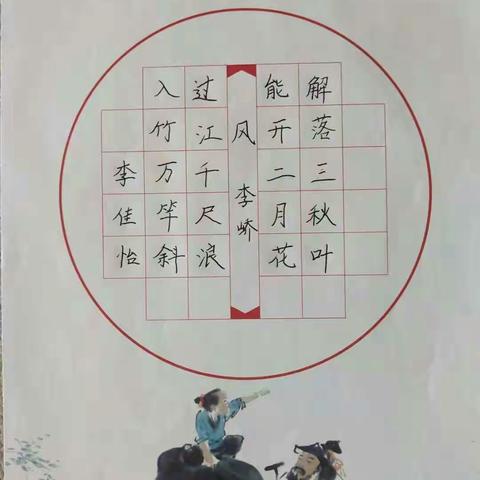 解落三秋叶
能开二月花
风 李峤
过江千尺浪
入竹万竿斜
李佳怡